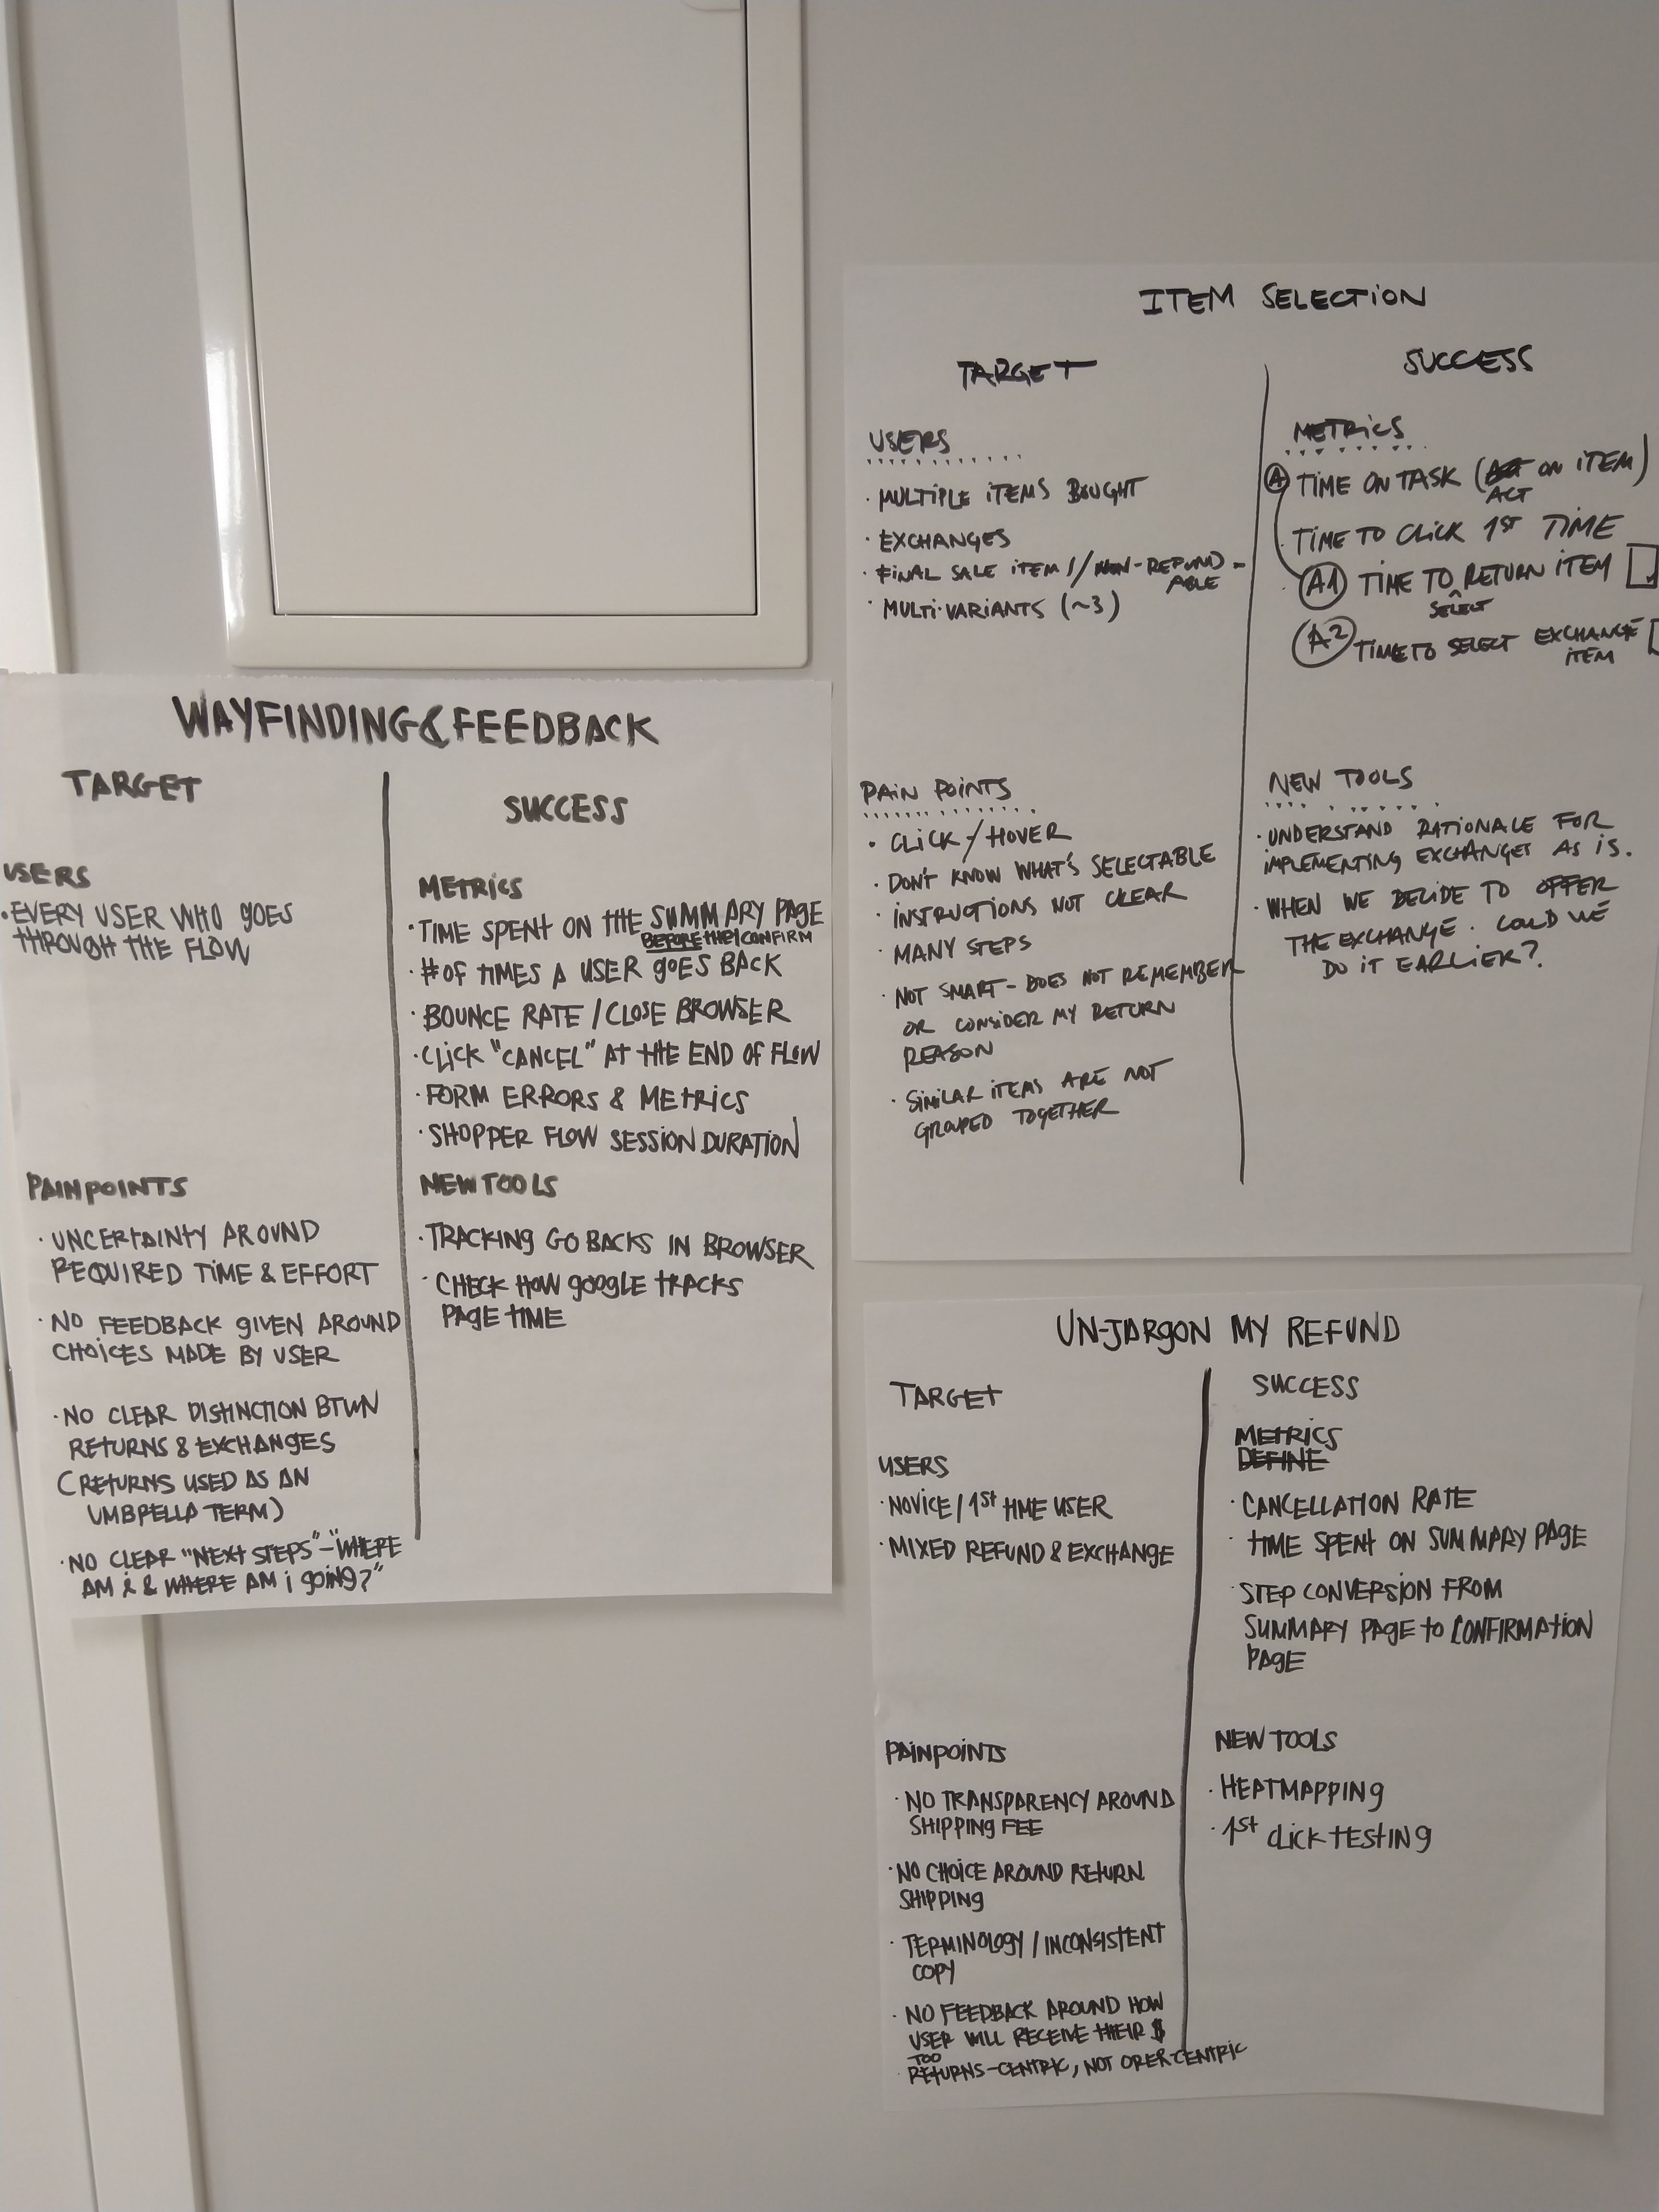 WAYFINDING & FEEDBACK
TARGET
USERS
· EVERY USER WHO GOES
THROUGH THE FLOW
PAINPOINTS
· UNCERTAINTY AROUND
REQUIRED TIME & EFFORT
· NO FEEDBACK GIVEN AROUND
CHOICES MADE BY USER
· NO CLEAR DISTINCTION BTWN
RETURNS & EXCHANGES
(RETURNS USED AS AN
UMBRELLA TERM)
· NO CLEAR "NEXT STEPS" - "WHERE
AM I & WHERE AM I GOING?"
SUCCESS
METRICS
· TIME SPENT ON THE SUMMARY PAGE
BEFORE THEY CONFIRM
· # OF TIMES A USER GOES BACK
· BOUNCE RATE / CLOSE BROWSER
· CLICK "CANCEL" AT THE END OF FLOW
· FORM ERRORS & METRICS
· SHOPPER FLOW SESSION DURATION
NEW TOOLS
· TRACKING GO BACKS IN BROWSER
· CHECK HOW GOOGLE TRACKS
PAGE TIME
ITEM SELECTION
TARGET
USERS
· MULTIPLE ITEMS BOUGHT
· EXCHANGES
· FINAL SALE ITEMS / NON-REFUND-
ABLE
· MULTI-VARIANTS (~3)
PAIN POINTS
· CLICK / HOVER
· DON'T KNOW WHAT'S SELECTABLE
· INSTRUCTIONS NOT CLEAR
· MANY STEPS
· NOT SMART - DOES NOT REMEMBER
OR CONSIDER MY RETURN
REASON
· SIMILAR ITEMS ARE NOT
GROUPED TOGETHER
SUCCESS
METRICS
A TIME ON TASK (ACT ON ITEM)
ACT
· TIME TO CLICK 1ST TIME
· A1 TIME TO RETURN ITEM
SELECT
A2 TIME TO SELECT EXCHANGE
ITEM
NEW TOOLS
· UNDERSTAND RATIONALE FOR
IMPLEMENTING EXCHANGES AS IS.
· WHEN WE DECIDE TO OFFER
THE EXCHANGE. COULD WE
DO IT EARLIER?
UN-JARGON MY REFUND
TARGET
USERS
· NOVICE / 1st TIME USER
· MIXED REFUND & EXCHANGE
PAINPOINTS
· NO TRANSPARENCY AROUND
SHIPPING FEE
· NO CHOICE AROUND RETURN
SHIPPING
· TERMINOLOGY / INCONSISTENT
COPY
· NO FEEDBACK AROUND HOW
USER WILL RECEIVE THEIR $
TOO
· RETURNS-CENTRIC, NOT ORER CENTRIC
SUCCESS
METRICS
DEFINE
· CANCELLATION RATE
· TIME SPENT ON SUMMARY PAGE
· STEP CONVERSION FROM
SUMMARY PAGE TO CONFIRMATION
PAGE
NEW TOOLS
· HEATMAPPING
· 1st CLICK TESTING